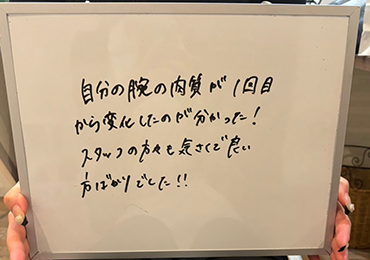 自分の腕の肉質が1回目
から変化したのが分かった!
スタッフの方々も気さくで良い
方ばかりでした!!